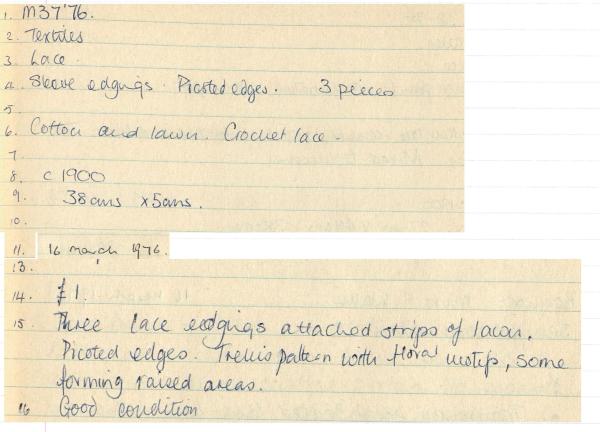 1. M37'76.
2. Textiles
3. Lace.
4. Sleeve edgings. Picoted edges. 3 pieces
5.
6. Cotton and lawn. Crochet lace.
7.
8. c 1900
9. 38cms x 5cms.
10.
11. 16 march 1976.
13.
14. £1.
15. Three lace edgings attached strips of lawn.
Picoted edges. Trellis pattern with floral motifs, some
forming raised areas.
16 Good condition